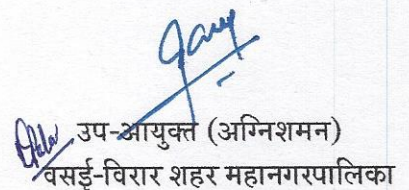 उप-आयुक्त (अग्निशमन)
वसई-विरार शहर महानगरपालिका